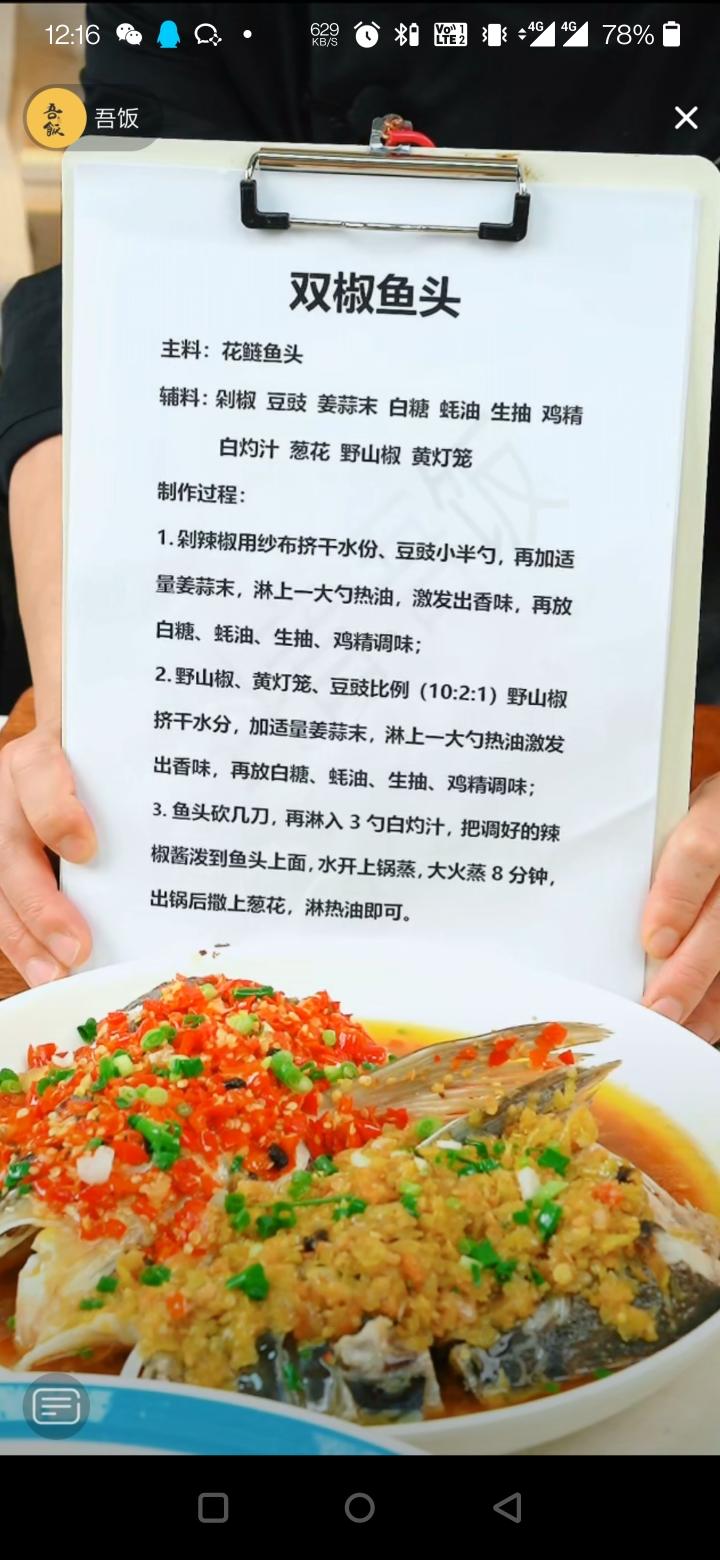 12:16
629 KB/S
Vo)) 1 LTE 2
4G 4G 78%
吾饭 吾饭
双椒鱼头
主料：花鲢鱼头
辅料：剁椒 豆豉 姜蒜末 白糖 蚝油 生抽 鸡精
白灼汁 葱花 野山椒 黄灯笼
制作过程：
1.剁辣椒用纱布挤干水份、豆豉小半勺，再加适
量姜蒜末，淋上一大勺热油，激发出香味，再放
白糖、蚝油、生抽、鸡精调味；
2.野山椒、黄灯笼、豆豉比例（10:2:1）野山椒
挤干水分，加适量姜蒜末，淋上一大勺热油激发
出香味，再放白糖、蚝油、生抽、鸡精调味；
3. 鱼头砍几刀，再淋入 3 勺白灼汁，把调好的辣
椒酱泼到鱼头上面，水开上锅蒸，大火蒸 8 分钟，
出锅后撒上葱花，淋热油即可。